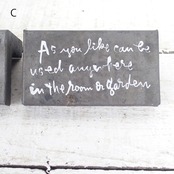 C
As you like can be
used anywhere
in the room or garden